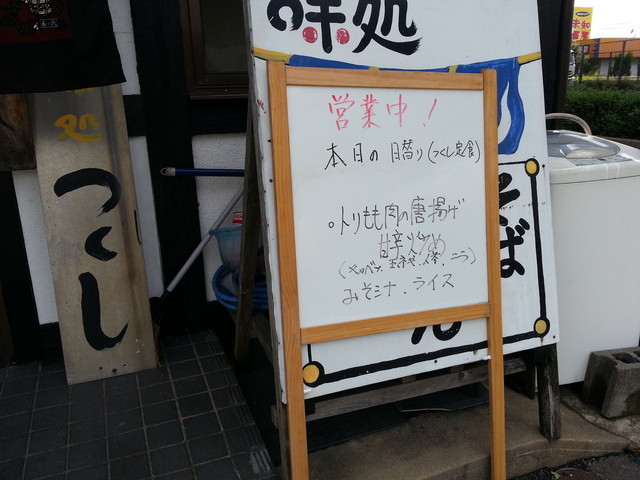 味処
処
つくし
営業中!
本日の日替り(つくし定食)
。トリもも肉の唐揚げ
甘辛炒め
(キャベツ、玉ネギ、人参、ニラ)
みそミナ、ライス
そば